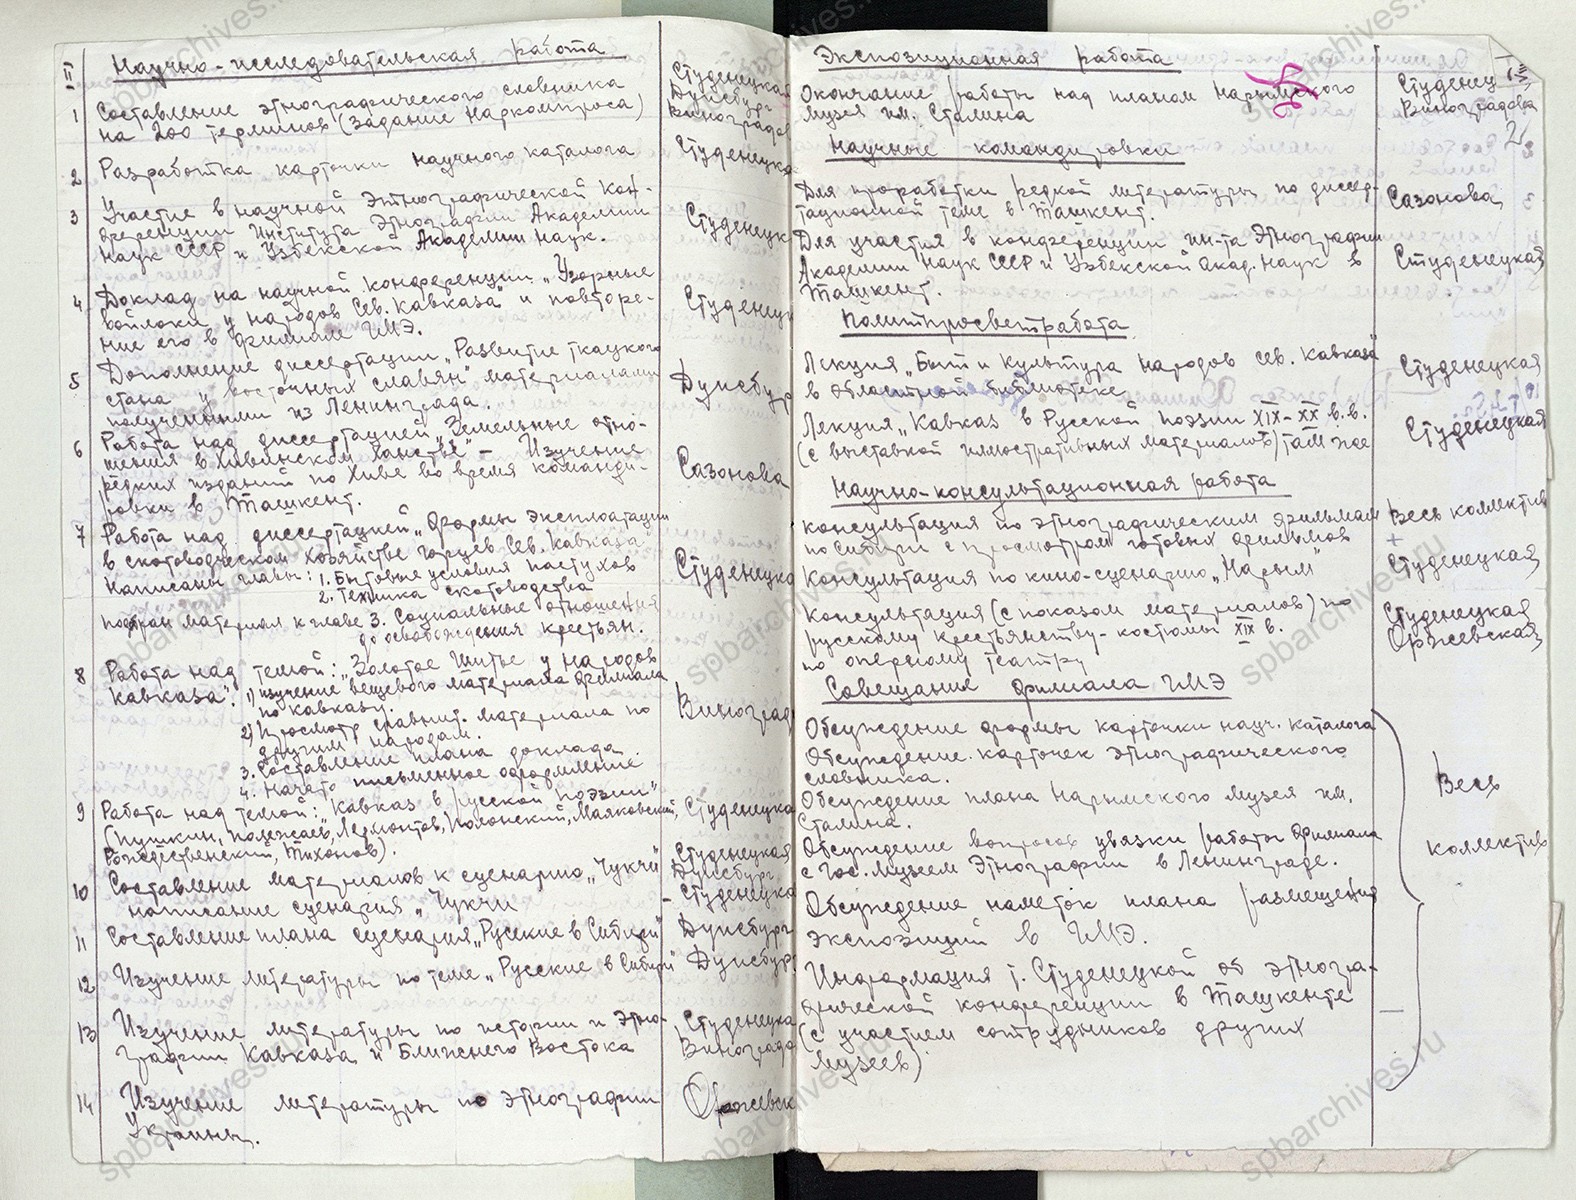 II Научно-исследовательская работа
1 Составление этнографического словника Студенецкая
на 200 терминов (задание Наркомпроса) Дуисбург
Виноградов
2 Разработка карточки научного каталога Студенецка
3 Участие в научной Этнографической кон-
ференции Института Этнографии Академии Студенецк
Наук СССР и Узбекской Академии Наук.
4 Доклад на научной конференции „Узорные
войлоки у народов Сев. Кавказа" и повторе- Студенецк
ние его в филиале ГМЭ.
5 Дополнение диссертации „Развитие ткацкого
стана у восточных славян" материалами Дуисбур
полученными из Ленинграда.
6 Работа над диссертацией „Земельные отно-
шения в Хивинском ханстве" – Изучение Сазонова
редких изданий по Хиве во время команди-
ровки в Ташкент.
7 Работа над диссертацией „Формы эксплоатации
в скотоводческом хозяйстве горцев Сев. Кавказа"
Написаны главы: 1. Бытовые условия пастухов Студенецка
2. Техника скотоводства
подобран материал к главе 3. Социальные отношения
до освобождения крестьян.
8 Работа над темой: „Золотое шитье у народов
Кавказа": 1) изучение вещевого материала филиала
по Кавказу. Виноград
2) Просмотр сравнит. материала по
другим народам.
3. Составление плана доклада.
4. Начато письменное оформление
9 Работа над темой: „Кавказ в русской поэзии" Студенецка
(Пушкин, Полежаев, Лермонтов, Полонский, Маяковский,
Рождественский, Тихонов).
10 Составление материалов к сценарию „Чукчи" Студенецкая
Дуисбург
написание сценария „Чукчи – Студенецка
11 Составление плана сценария „Русские в Сибири" Дуисбург
12 Изучение литературы по теме „Русские в Сибири" Дуисбур
13 Изучение литературы по истории и этно- Студенецка
графии Кавказа и Ближнего Востока Виноградо
14 Изучение литературы по этнографии Оржевск
Украины.
Экспозиционная работа
Окончание работы над планом Нарымского Студенец
музея им. Сталина Виноградова
26
Научные командировки
Для проработки редкой литературы по диссер-
тационной теме в Ташкент. Сазонова
Для участия в конференции ин-та Этнографии
Академии Наук СССР и Узбекской Акад. Наук в Студенецкая
Ташкент.
Политпросветработа
Лекция „Быт и культура народов Сев. Кавказа" Студенецкая
в областной библиотеке
Лекция „Кавказ в Русской поэзии XIX–XX в.в. Студенецкая
(с выставкой иллюстративных материалов) там же
Научно-консультационная работа
Консультация по этнографическим фильмам Весь коллектив
по Сибири с просмотром готовых фильмов +
Консультация по кино-сценарию „Нарым" Студенецкая
Консультация (с показом материалов) по Студенецкая
русскому крестьянству – костюмы XIX в. Оржевская
по оперному театру
Совещания филиала ГМЭ
Обсуждение формы карточки науч. каталога
Обсуждение карточек этнографического
словника.
Обсуждение плана Нарымского музея им. Весь
Сталина.
Обсуждение вопросов увязки работы филиала коллектив
с Гос. Музеем Этнографии в Ленинграде.
Обсуждение наметок плана размещения
экспозиций в ГМЭ.
Информация т. Студенецкой об этногра-
фической конференции в Ташкенте
(с участием сотрудников других
музеев)
spbarchives.ru